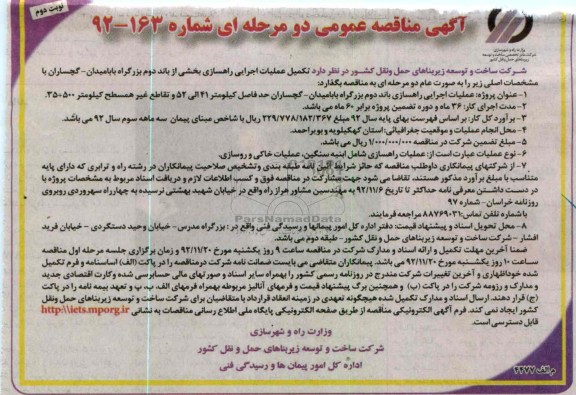 نوبت دوم
آگهی مناقصه عمومی دو مرحله ای شماره ۱۶۳-۹۲
وزارت راه و شهرسازی
شرکت ساخت و توسعه زیربناهای حمل و نقل کشور
شرکت ساخت و توسعه زیربناهای حمل ونقل کشور در نظر دارد تکمیل عملیات اجرایی راهسازی بخشی از باند دوم بزرگراه بابامیدان- گچساران با
مشخصات اصلی زیر را به صورت عام دو مرحله ای به مناقصه بگذارد:
۱- عنوان پروژه: عملیات اجرایی راهسازی باند دوم بزرگراه بابامیدان- گچساران حد فاصل کیلومتر ۴۱ الی ۵۲ و تقاطع غیر همسطح کیلومتر ۵۰۰+۳۵.
۲- مدت اجرای کار: ۳۶ ماه و دوره تضمین پروژه برابر ۶۰ ماه می باشد.
۳- برآورد کل کار: بر اساس فهرست بهای پایه سال ۹۲ مبلغ ۲۲۹/۷۷۸/۱۸۲/۳۶۷ ریال با شاخص مبنای پیمان سه ماهه سوم سال ۹۲ می باشد.
۴- محل انجام عملیات و موقعیت جغرافیائی: استان کهگیلویه و بویراحمد.
۵- مبلغ تضمین شرکت در مناقصه ۱/۰۰۰/۰۰۰/۰۰۰ ریال می باشد.
۶- نوع عملیات عبارت است از: عملیات راهسازی شامل ابنیه سنگین، عملیات خاکی و روسازی.
۷- از شرکتهای پیمانکاری داوطلب مناقصه که حائز شرایط آئین نامه طبقه بندی و تشخیص صلاحیت پیمانکاران در رشته راه و ترابری که دارای پایه
متناسب با مبلغ برآورد مذکور هستند، تقاضا می شود جهت مشارکت در مناقصه فوق و کسب اطلاعات لازم و دریافت اسناد مربوط به مشخصات پروژه با
در دست داشتن معرفی نامه حداکثر تا تاریخ ۹۲/۱۱/۶ به مهندسین مشاور هراز راه واقع در خیابان شهید بهشتی نرسیده به چهارراه سهروردی روبروی
روزنامه خراسان- شماره ۹۷
با شماره تلفن تماس: ۸۸۷۶۹۰۳۱ مراجعه فرمایند.
۸- محل تحویل اسناد و پیشنهاد قیمت: دفتر اداره کل امور پیمانها و رسیدگی فنی واقع در : بزرگراه مدرس- خیابان وحید دستگردی - خیابان فرید
افشار - شرکت ساخت و توسعه زیربناهای حمل و نقل کشور- طبقه دوم می باشد.
ضمنا آخرین مهلت تکمیل و ارائه اسناد و مدارک شرکت در مناقصه ساعت ۹ روز یکشنبه مورخ ۹۲/۱۱/۲۰ و زمان برگزاری جلسه مرحله اول مناقصه
ساعت ۱۰ روز یکشنبه مورخ ۹۲/۱۱/۲۰ می باشد. پیمانکاران متقاضی می بایست ضمانت نامه شرکت درمناقصه را در پاکت (الف) اساسنامه و فرم تکمیل
شده خوداظهاری و آخرین تغییرات شرکت مندرج در روزنامه رسمی کشور را بهمراه سایر اسناد و صورتهای مالی حسابرسی شده و کارت اقتصادی جدید
و مدارک و رزومه شرکت را در پاکت (ب) و همچنین برگ پیشنهاد قیمت و فرمهای آنالیز مربوطه بهمراه فرمهای الف، ب، پ و تعهد بیمه نامه را در پاکت
(ج) قرار دهند. ارسال اسناد و مدارک تکمیل شده هیچگونه تعهدی در زمینه انعقاد قرارداد با متقاضیان برای شرکت ساخت و توسعه زیربناهای حمل ونقل
کشور ایجاد نمی کند. فرم آگهی الکترونیکی مناقصه از طریق صفحه الکترونیکی پایگاه ملی اطلاع رسانی مناقصات به نشانی http:\\iets.mporg.ir
قابل دسترسی است.
وزارت راه و شهرسازی
شرکت ساخت و توسعه زیربناهای حمل و نقل کشور
اداره کل امور پیمان ها و رسیدگی فنی
م الف ۴۲۷۷
ParsNamadData